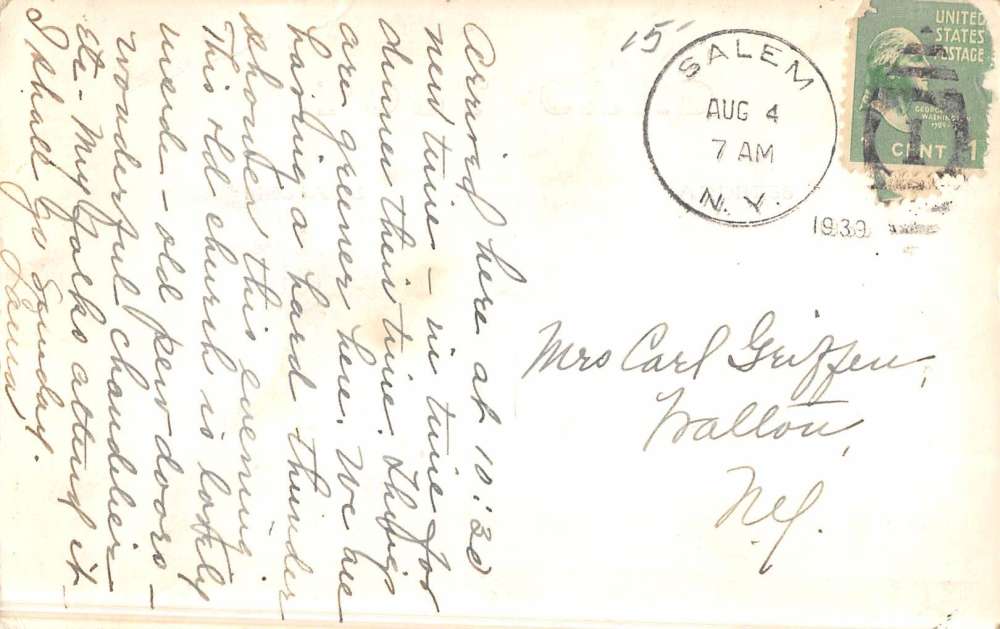 Arrived here at 10:30
new time – in time for
dinner their time. Things
are greener here. We are
having a hard thunder
shower this evening
This old church is lovely
used – old pew doors –
wonderful chandelier
etc – My folks attend it –
I shall go Sunday.
15
SALEM
AUG 4
7 AM
N.Y.
1939
UNITED
STATES
POSTAGE
GEORGE
WASHINGTON
1 CENT 1
Mrs Carl Griffen,
Walton,
N.Y.